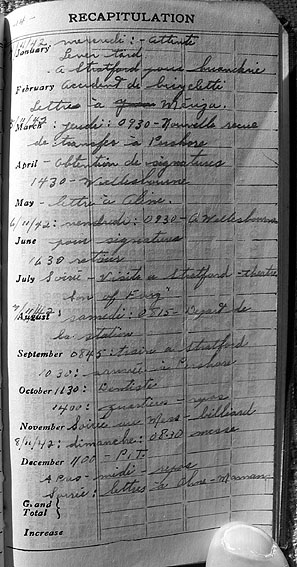 RECAPITULATION
4/11/42 mercredi: - Attente
January Lever tard
A Stratford pour buanderie
February Accident de bicyclette
Lettres à
5/11/42
March : jeudi: 0930 - Nouvelle recue
de transfer à Pershore
April - obtention de signatures
1430 - Wellesbourne
May - lettre à Aline.
6/11/42: vendredi: 0930 - A Wellesbourne
June pour signatures
1630 retour
July Soirée - Visite a Stratford - théatre
7/11/42
August : samedi: 0815 - Depart de
la station
September 0845: traine a Stratford
1030: arrivée à Pershore
October 1130: Dentiste
1400: quartiers - repos
November Soirée au Mess - billiard
8/11/42: dimanche: 0830 messe
December 1100 - P.T.
Apres-midi - repos
Soirée: lettres à Maman
Grand Total
Increase